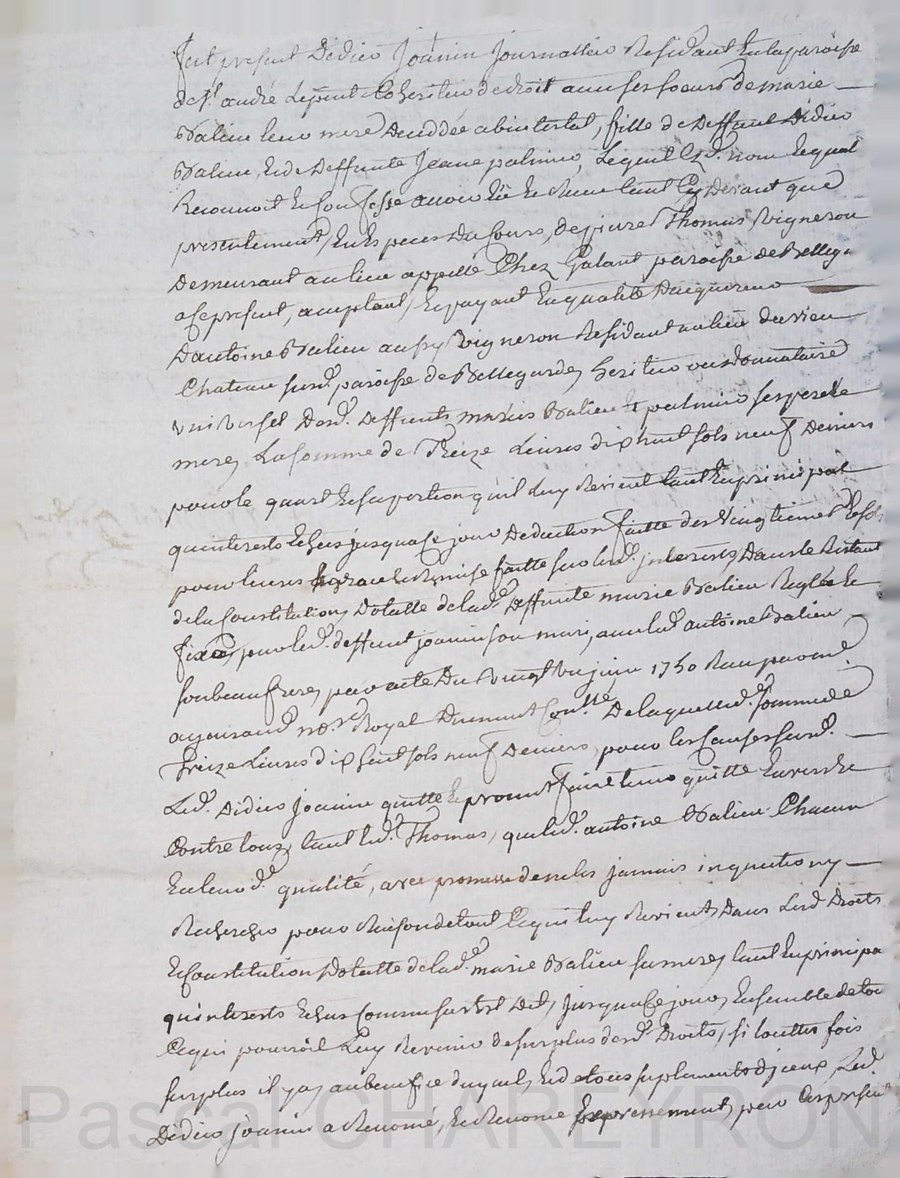 fut present Didier Joanin Journallier Residant en la paroisse
de St. andré Lepuit Coheritier de droit avec ses soeurs de marie
Valieu leur mere Decedée abintestat, fille de Deffunt Didier
Valieu, Et de Deffunte Jeane palmier, Lequel Ced. nom Lequel
Reconnoit Et Confesse avoir Eü Et Receu tant Cy Devant que
presentement, En Especes Du Cours, de sieur Thomas Vigneron
Demeurant au lieu appellé Chez Galant paroisse de Belleg.
a Ce present, acceptant, Et payant En qualité Dacquereur
Dantoine Valieu aussy Vigneron Residant au lieu du vieu
Chateau surd. paroisse de Bellegarde, heritier ou donnataire
universel Desd. Deffunts mariés Valieu Et palmier ses pere Et
mere, La somme de Treize Livres dix huit sols neuf Deniers
pour le quart Et sa portion qu'il Luy Revient tant En principal
qu'interests Echus jusqu'a Ce jour Deduction faitte des Vingtiemes
pour livres grace Et Remise faitte sur lesd. jnterests, Dans le Restant
de la Constitution Dotalle de lad. Deffunte marie Valieu Reglée Et
fixée, par led. deffunt joanin son mari, avec led. antoine Valieu
son beaufrere, par acte Du Vingt Un juin 1750 Receu par me.
no.re Royal De laquelle d. somme de
Treize Livres dix huit sols neuf Deniers, pour les Causes surd.
Led. Didier joanin quitte Et promet faire tenir quitte Envers Et
Contre tous, tant led. Thomas, que led. antoine Valieu Chacun
En leur d. qualité, avec promesse de ne les jamais inquetter ny
Rechercher pour Raison de tout Ce qui luy Revient Dans Lesd. Droits
Et Constitution Dotalle de lad. marie Valieu sa mere, tant En principa
qu'interests Echus Comme sus Est Dit, jusqu'a Ce jour, Ensemble de tou
Ce qui pourroit Luy Revenir de surplus desd. Droits, si touttes fois
surplus il y a, au benefice duquel, Et de tous suplements d'jceux Led.
Didier joanin a Renoncé, Et Renonce Expressement, par Ces present
Pascal CHAREYRON